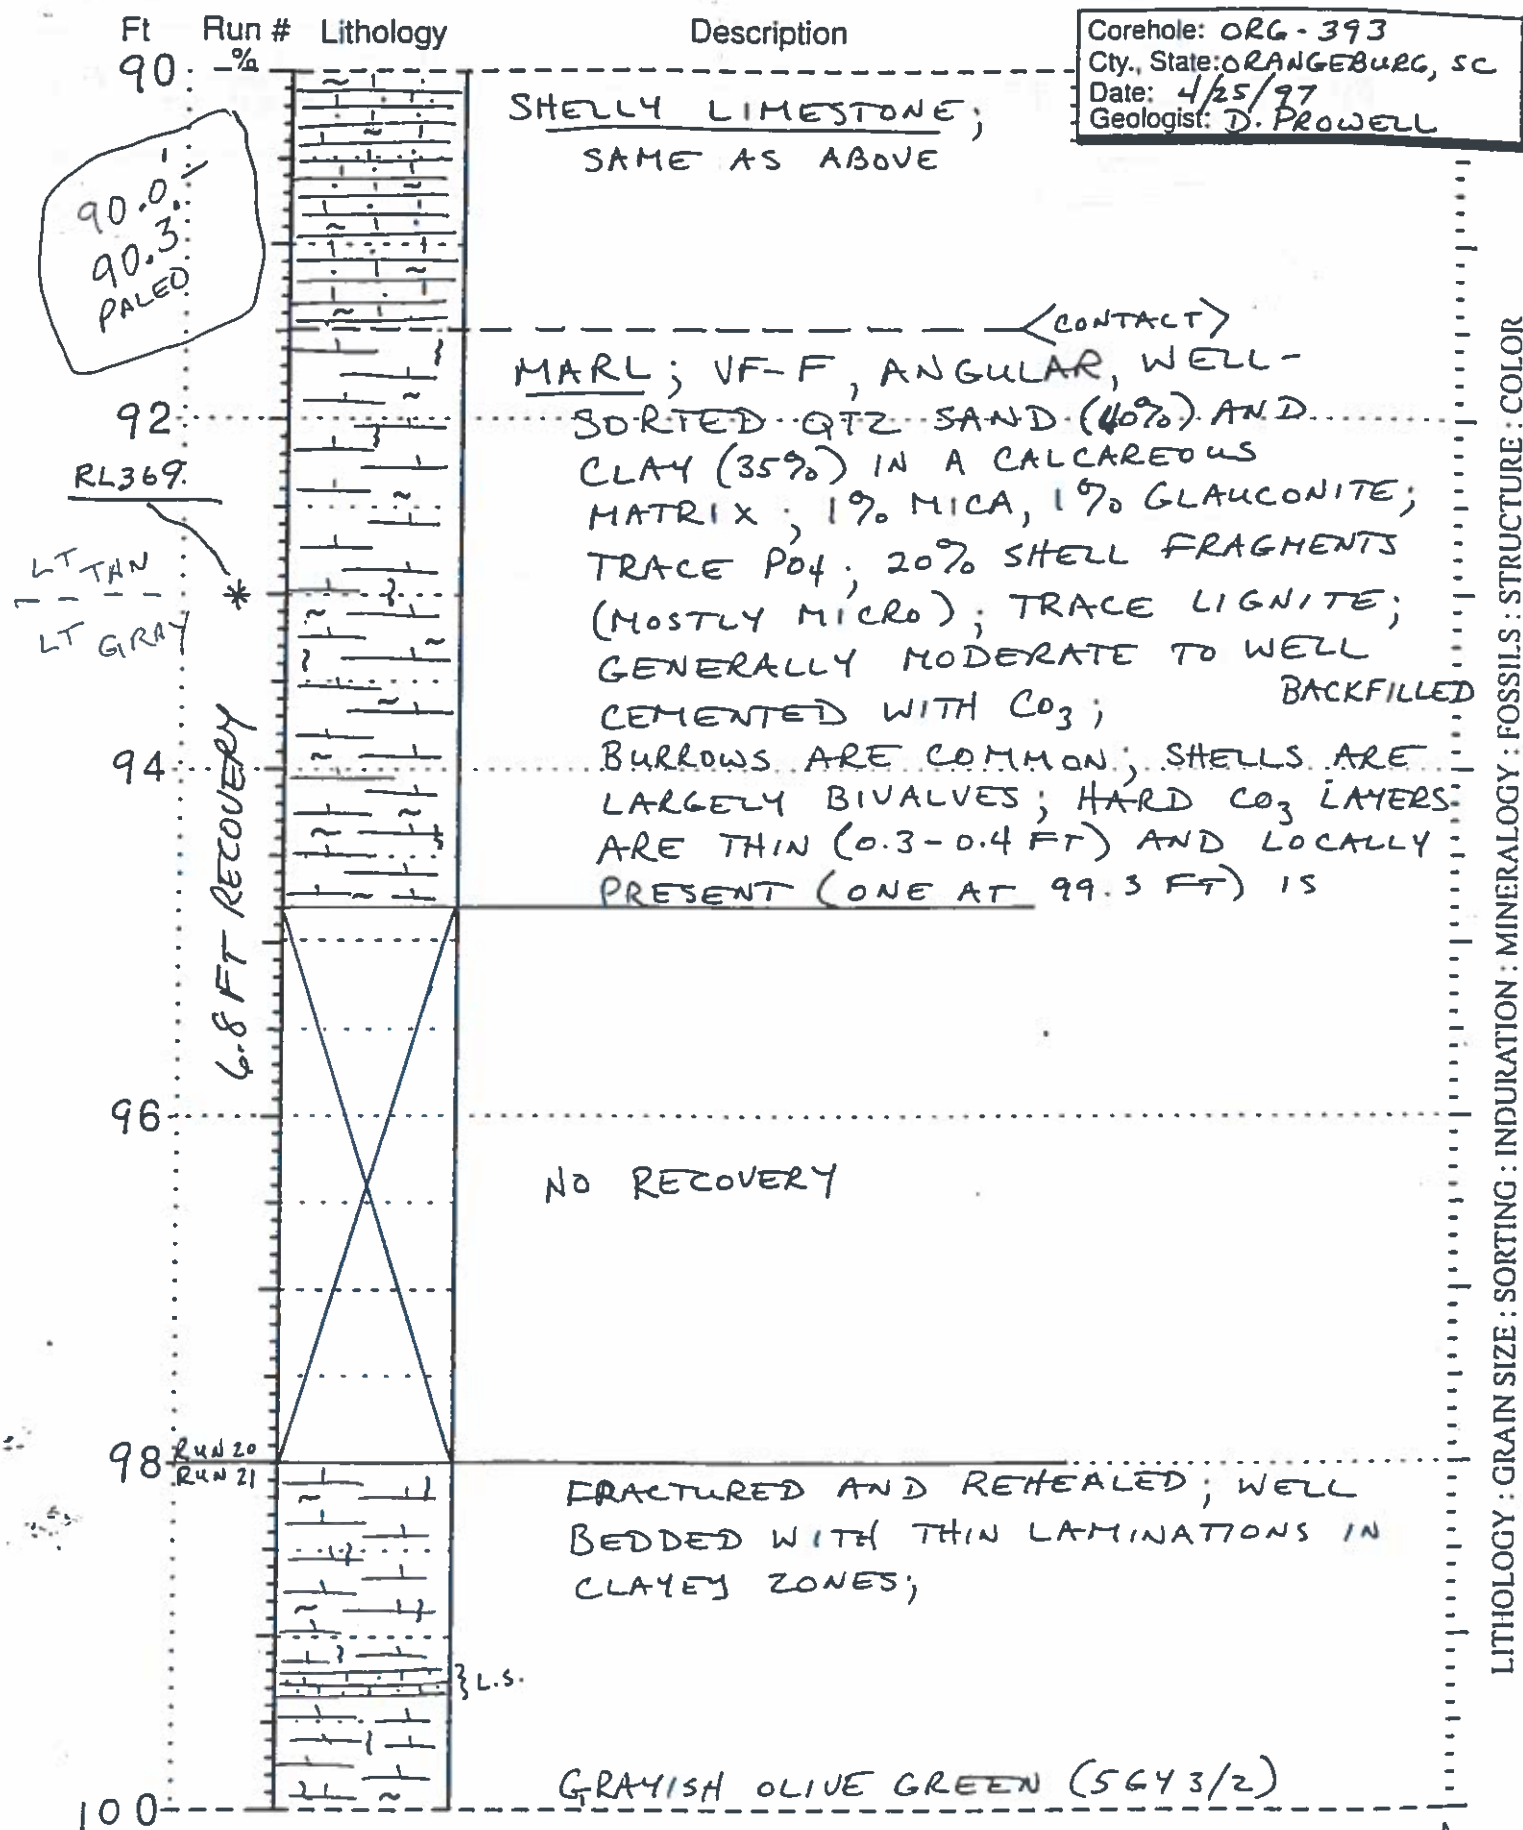 Ft Run # Lithology Description
-%
Corehole: ORG-393
Cty., State: ORANGEBURG, SC
Date: 4/25/97
Geologist: D. PROWELL
90
SHELLY LIMESTONE;
SAME AS ABOVE
90.0-
90.3
PALEO
<CONTACT>
MARL; VF-F, ANGULAR, WELL-
92
SORTED QTZ SAND (40%) AND
CLAY (35%) IN A CALCAREOUS
RL369
MATRIX; 1% MICA, 1% GLAUCONITE;
TRACE PO4; 20% SHELL FRAGMENTS
LT TAN
*
LT GRAY
(MOSTLY MICRO); TRACE LIGNITE;
GENERALLY MODERATE TO WELL
CEMENTED WITH CO3; BACKFILLED
94
BURROWS ARE COMMON; SHELLS ARE
LARGELY BIVALVES; HARD CO3 LAYERS
ARE THIN (0.3-0.4 FT) AND LOCALLY
PRESENT (ONE AT 99.3 FT) IS
6.8 FT RECOVERY
96
NO RECOVERY
98
RUN 20
RUN 21
FRACTURED AND REHEALED; WELL
BEDDED WITH THIN LAMINATIONS IN
CLAYEY ZONES;
} L.S.
GRAYISH OLIVE GREEN (5GY 3/2)
100
LITHOLOGY : GRAIN SIZE : SORTING : INDURATION : MINERALOGY : FOSSILS : STRUCTURE : COLOR